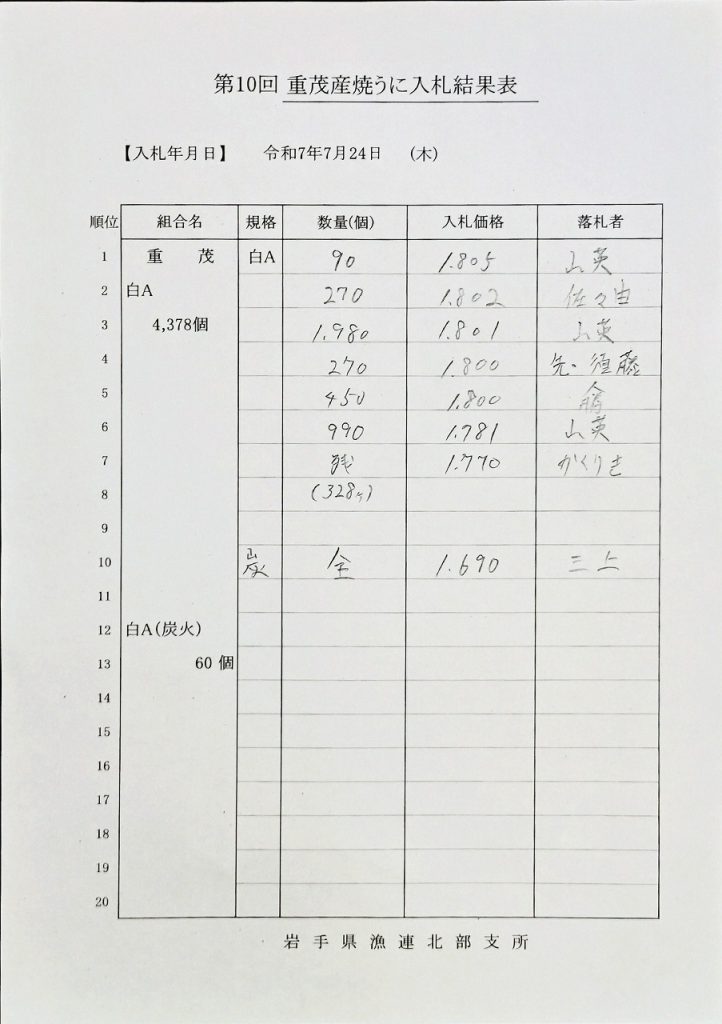 第10回 重茂産焼うに入札結果表
【入札年月日】 令和7年7月24日 (木)
順位 組合名 規格 数量(個) 入札価格 落札者
1 重 茂 白A 90 1.805 山英
2 白A 270 1.802 佐々由
3 4,378個 1.980 1.801 山英
4 270 1.800 先・須藤
5 450 1.800
6 990 1.781 山英
7 残 1.770 かくりき
8 (328ヶ)
9
10 炭 全 1.690 三上
11
12 白A(炭火)
13 60 個
14
15
16
17
18
19
20
岩手県漁連北部支所